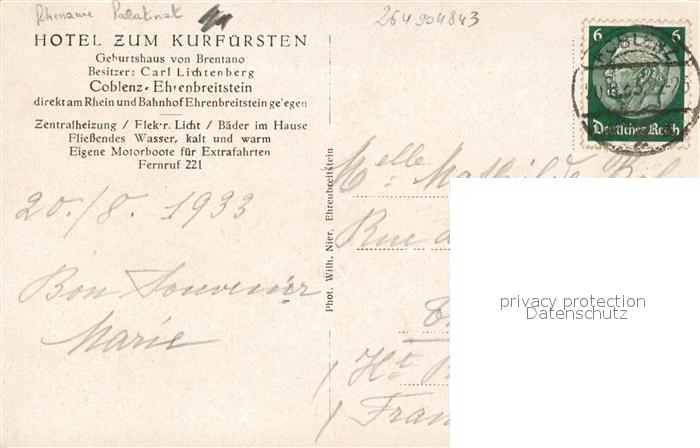 Rhenanie Palatinat
264904843
HOTEL ZUM KURFÜRSTEN
Geburtshaus von Brentano
Besitzer: Carl Lichtenberg
Coblenz-Ehrenbreitstein
direkt am Rhein und Bahnhof Ehrenbreitstein gelegen
Zentralheizung / Elektr. Licht / Bäder im Hause
Fließendes Wasser, kalt und warm
Eigene Motorboote für Extrafahrten
Fernruf 221
20./8. 1933
Bon Souvenir
Marie
Phot. Wilh. Nier, Ehrenbreitstein
6 6
Deutsches Reich
Melle Mathilde
Rue
Ht
privacy protection
Datenschutz